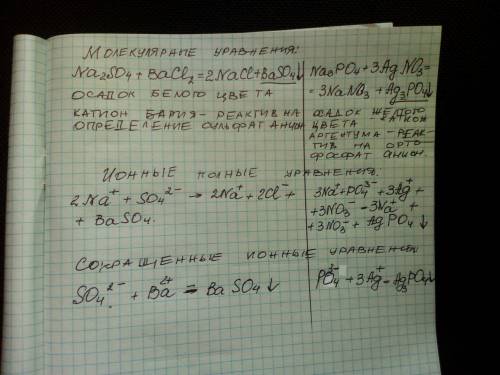 Молекулярные уравнения:
Na2SO4 + BaCl2 = 2NaCl + BaSO4↓
осадок белого цвета
катион бария - реактив на
определение сульфат анион
Na3PO4 + 3AgNO3 =
= 3NaNO3 + Ag3PO4↓
осадок желтого
цвета - катион
аргентума - реак-
тив на орто
фосфат анион.
Ионные полные уравнения:
2Na⁺ + SO4²⁻ → 2Na⁺ + 2Cl⁻ +
+ BaSO4.
3Na⁺ + PO4³⁻ + 3Ag⁺ +
+ 3NO3⁻ = 3Na⁺ +
+ 3NO3⁻ + AgPO4↓
Сокращенные ионные уравнения
SO4²⁻ + Ba²⁺ = BaSO4↓
PO4³⁻ + 3Ag⁺ = Ag3PO4↓